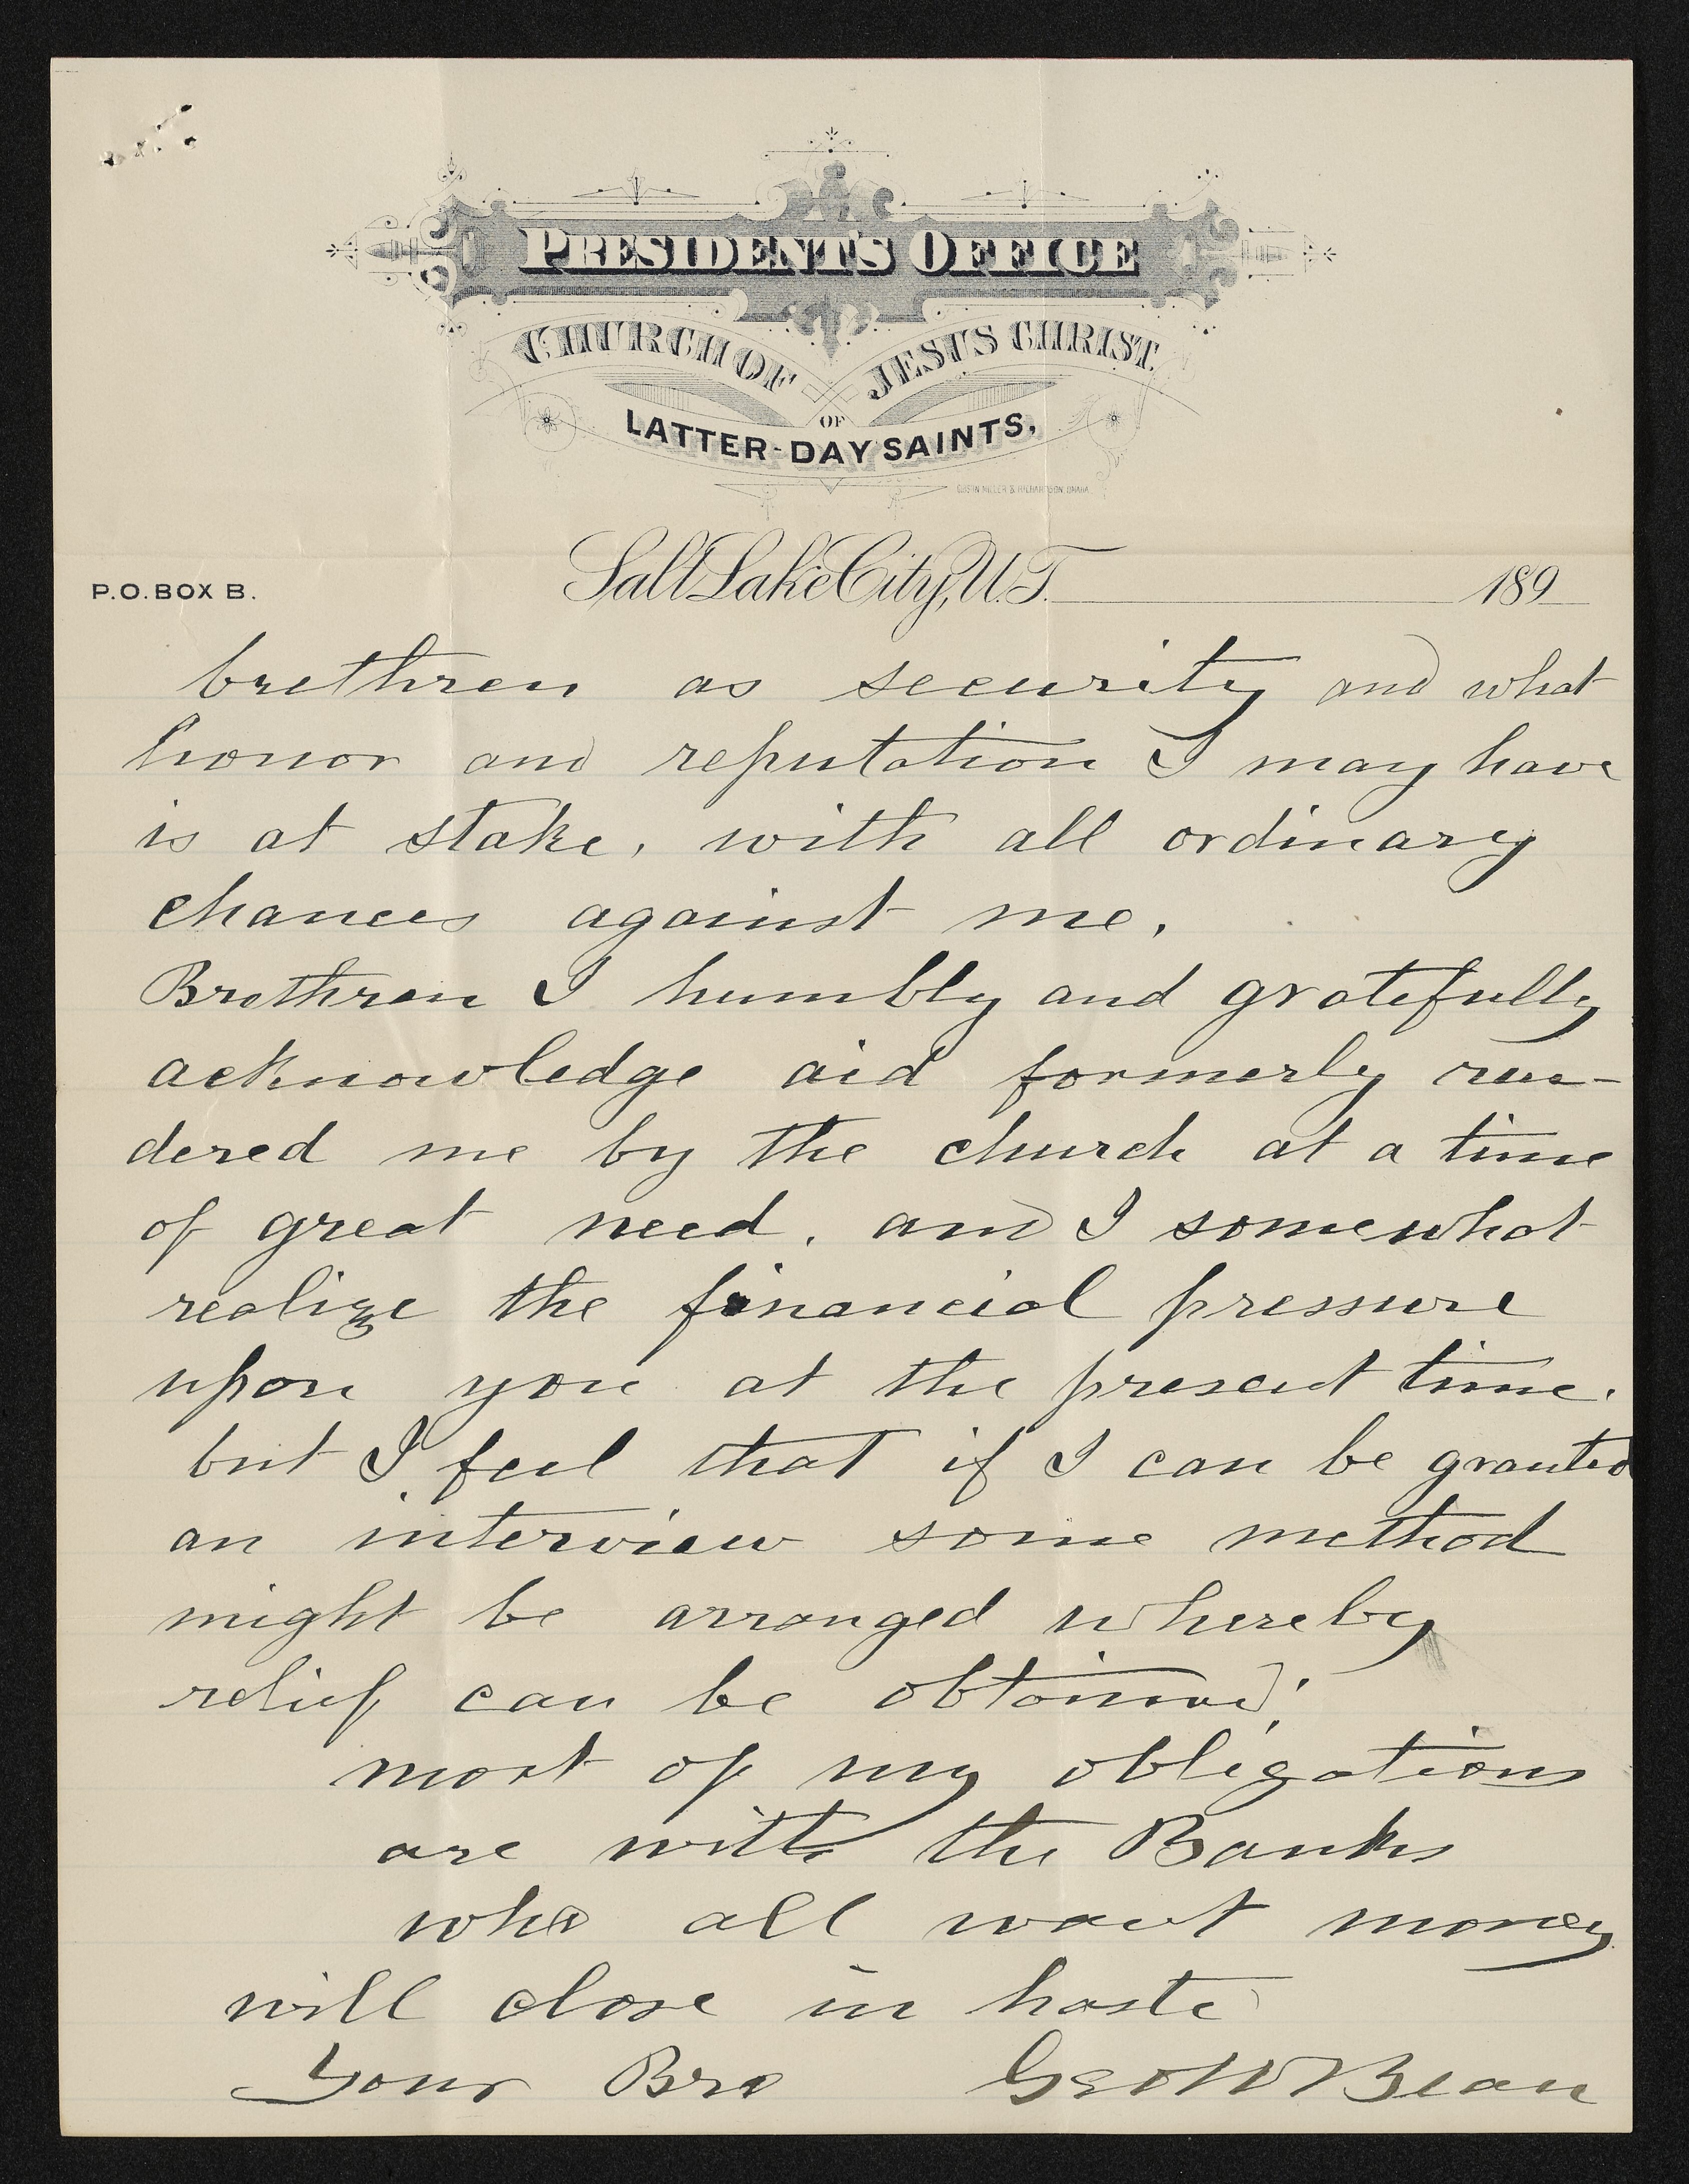 PRESIDENT'S OFFICE
CHURCH OF JESUS CHRIST
OF
LATTER-DAY SAINTS,
Salt Lake City, U.T. 189
P.O. BOX B.
brethren as security and what
honor and reputation I may have
is at stake, with all ordinary
chances against me.
Brethren I humbly and gratefully
acknowledge aid formerly ren-
dered me by the church at a time
of great need, and I somewhat
realize the financial pressure
upon you at the present time.
but I feel that if I can be granted
an interview some method
might be arranged whereby
relief can be obtained.
most of my obligations
are with the Banks
who all want money
will close in haste
Your Bro Geo W Bean